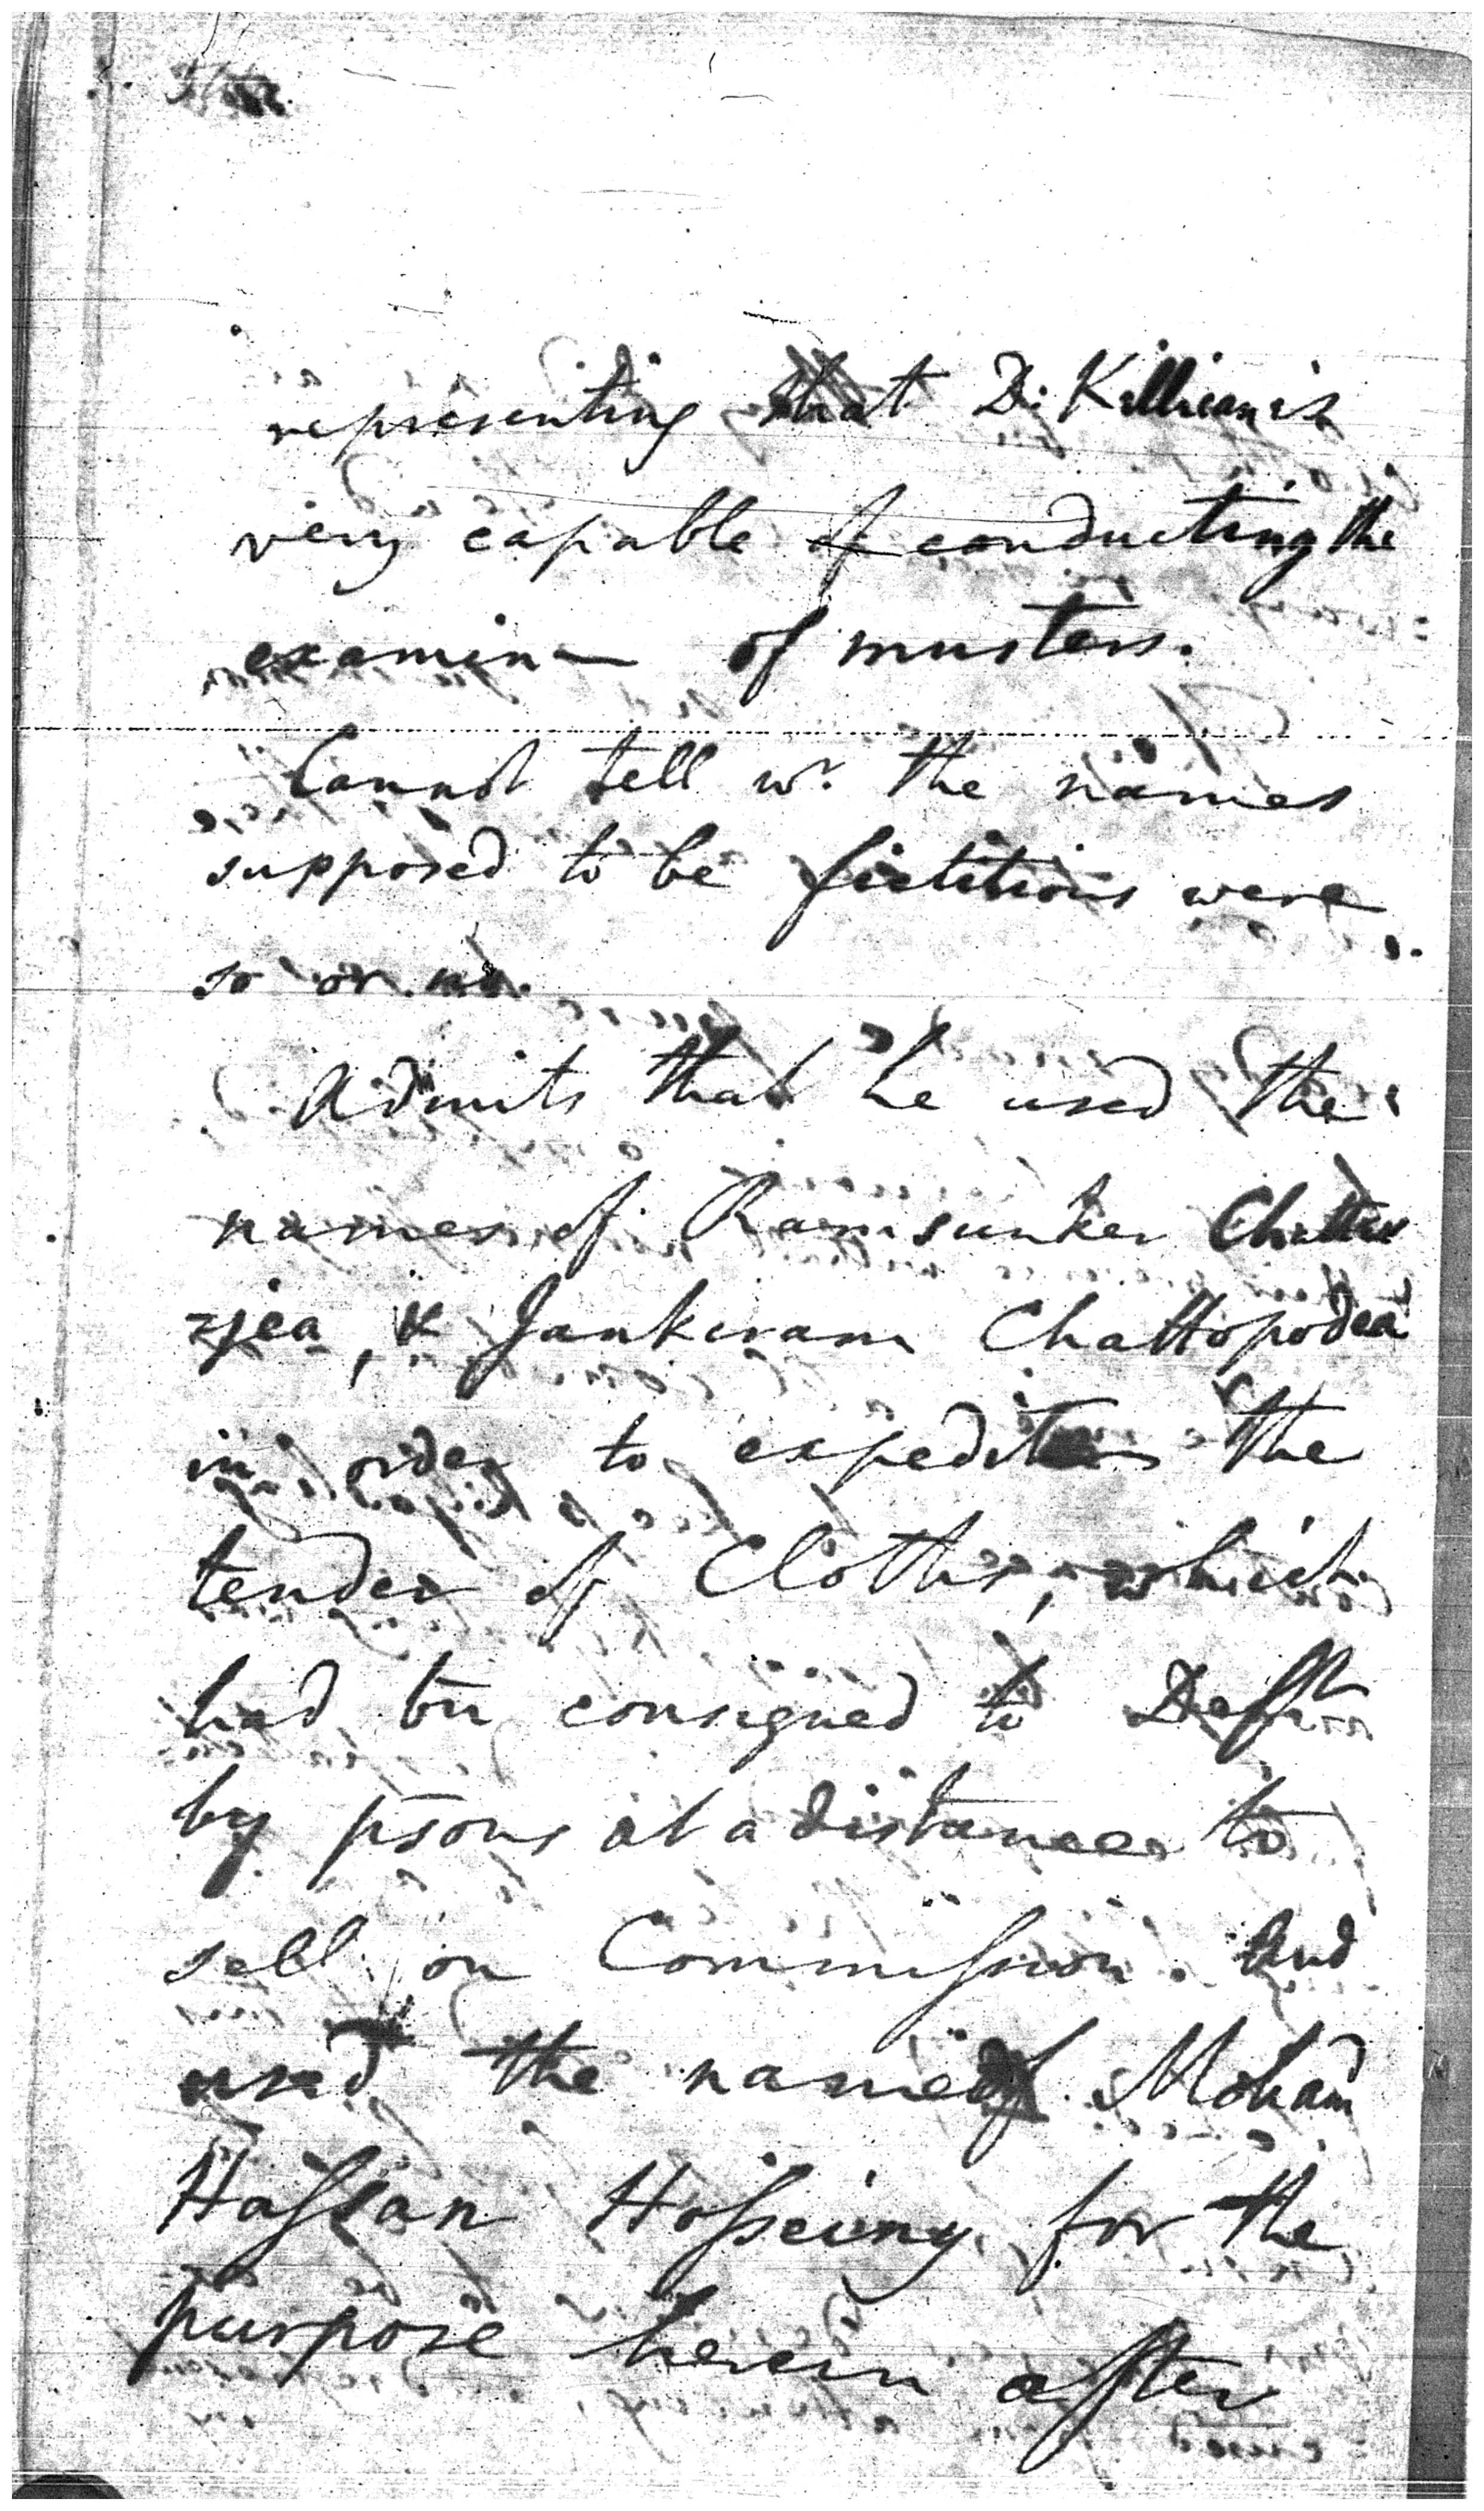 representing that D: Killican is
very capable of conducting the
examinn of musters.
Cannot tell wr. the names
supposed to be fictitious were
so or no.
Admits that he used the
names of Ramsunker Chatter
zjea, & Jankiram Chattopodea
in order to expedite the
tender of Cloths, which
had bn consigned to Defft
by psons at a distance to
sell on Commission. And
used the name of Moham
Hassan Hosseiny for the
purpose herein after